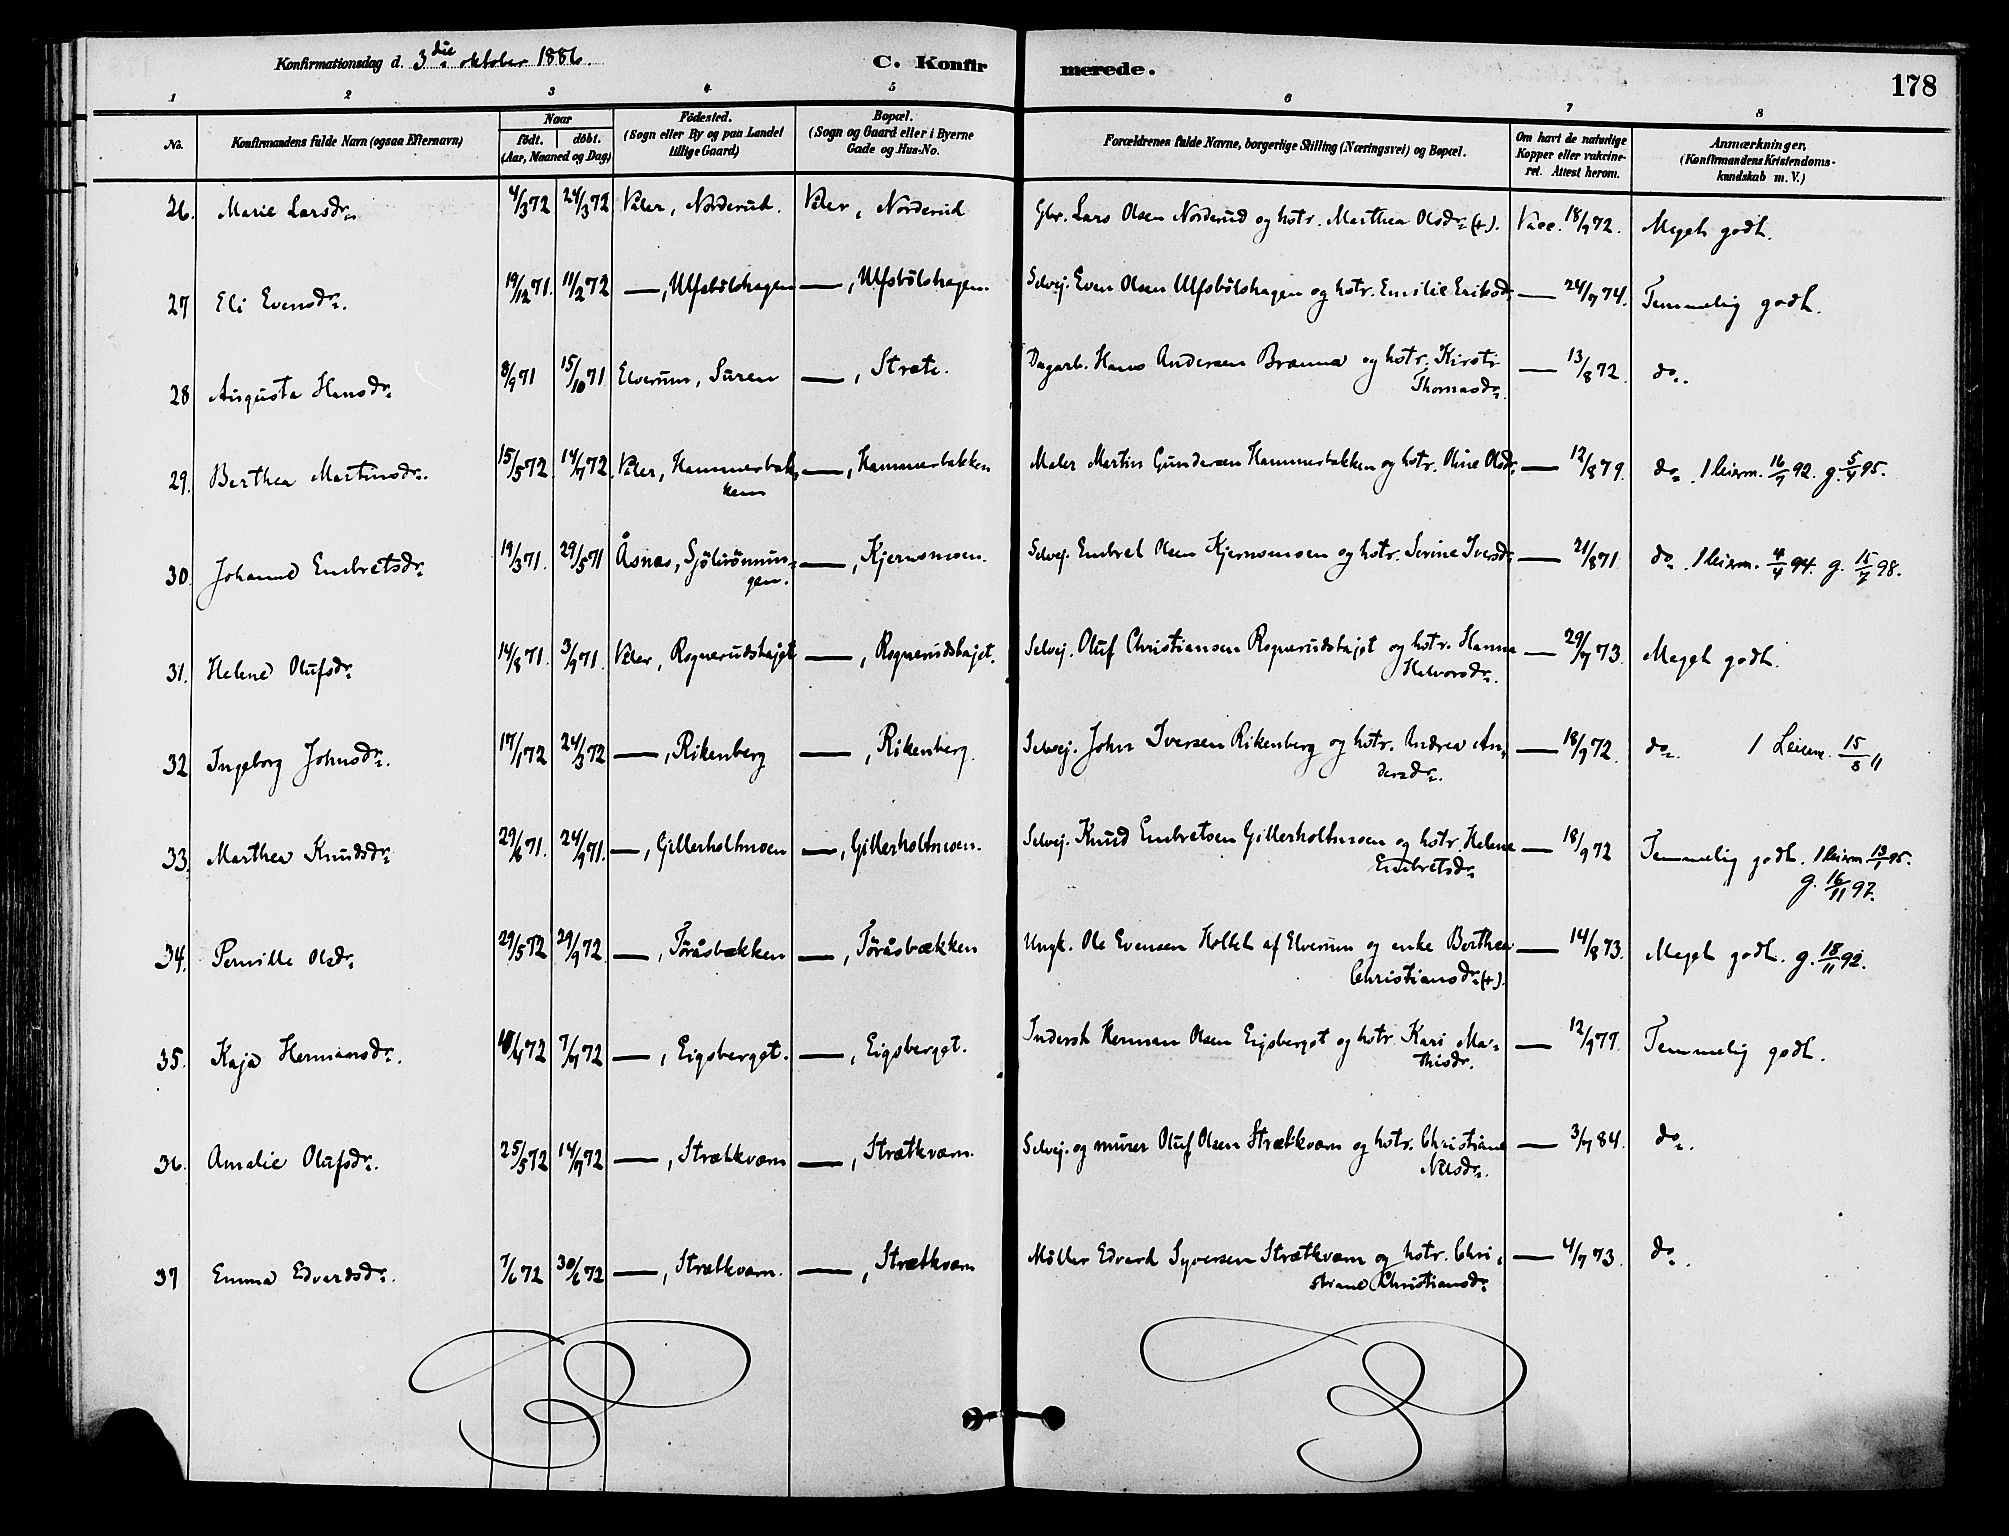 Konfirmationsdag d. 3die oktober 1886. C. Konfirmerede. 178
1 2 3 4 5 6 7 8
No. Konfirmandens fulde Navn (ogsaa Efternavn) Naar födt. döbt. (Aar, Maaned og Dag) Födested. (Sogn eller By og paa Landet tillige Gaard) Bopæl. (Sogn og Gaard eller i Byerne Gade og Hus-No. Forældrenes fulde Navne, borgerlige Stilling (Næringsvei) og Bopæl. Om havt de naturlige Kopper eller vakcineret. Attest herom. Anmærkninger. (Konfirmandens Kristendomskundskab m. V.)
26. Marie Larsdr. 4/3 72 24/3 72 Våler, Norderud. Våler, Norderud Gbr. Lars Olsen Norderud og hstr. Marthea Olsdr. (+). Vacc. 18/9 72. Meget godt.
27 Eli Evensdr. 19/12 71. 11/2 72 —, Ulfsbölshagen —, Ulfsbölshagen. Selvej. Even Olsen Ulfsbölshagen og hstr. Emilie Eriksdr. — 24/7 74. Temmelig godt.
28 Augusta Hansdr. 8/9 71 15/10 71. Elverum, Suren —, Strate. Dagarb. Hans Andersen Brænna og hstr. Kirsti
Thomasdr. — 13/8 72. do.
29. Berthea Martinsdr. 15/5 72 14/7 72. Våler, Hammerbak-
ken —, Hammerbakken Maler Martin Gundersen Hammerbakken og hstr. Oline Olsdr. — 12/8 79. do. 1 leierm. 16/7 92. g. 5/4 95.
30. Johanne Embretsdr. 19/3 71. 29/5 71 Åsnæs, —, Kjernsmoen. Selvej. Embret Olsen Kjernsmoen og hstr. Serine Iversdr. — 21/8 71. do. 1 leierm. 4/4 94. g. 15/7 98.
31. Helene Olufsdr. 14/8 71. 3/9 71. Våler, Rognerudshajet —, Rognerudshajet. Selvej. Oluf Christiansen Rognerudshajet og hstr. Hanna
Halvorsdr. — 29/7 73. Meget godt.
32 Ingeborg Johnsdr. 17/1 72 24/3 72 —, Rikenberg —, Rikenberg. Selvej. John Iversen Rikenberg og hstr. Andrea An-
dersdr. — 18/9 72. do. 1 Leierm. 15/8 11
33. Marthea Knudsdr. 29/6 71. 24/9 71. —, Gillerholtmoen —, Gillerholtmoen. Selvej. Knud Embretsen Gillerholtmoen og hstr. Helene
Embretsdr. — 18/9 72 Temmelig godt. 1 leierm 13/1 95.
g. 16/11 97.
34. Pernille Olsdr. 29/5 72 29/9 72. —, Töråsbækken —, Töråsbækken Ungk. Ole Evensen Holtet af Elverum og enke Berthea
Christiansdr. (+). — 14/8 73. Meget godt. g. 18/11 92.
35. Kaja Hermansdr. 72 7/7 72 —, Eigsberget. —, Eigsberget. Inderst Herman Olsen Eigsberget og hstr. Kari Ma-
thisdr. — 12/9 77. Temmelig godt.
36. Amalie Olufsdr. 25/5 72 14/7 72 —, Strætkværn —, Strætkværn. Selvej. og murer Oluf Olsen Strætkværn og hstr. Christiane
Nilsdr. — 3/7 84. do.
37 Emma Edvardsdr. 7/6 72 30/6 72 —, Strætkværn. —, Strætkværn Möller Edvard Syversen Strætkværn og hstr. Chri-
stiane Christiansdr. — 4/7 73. do.